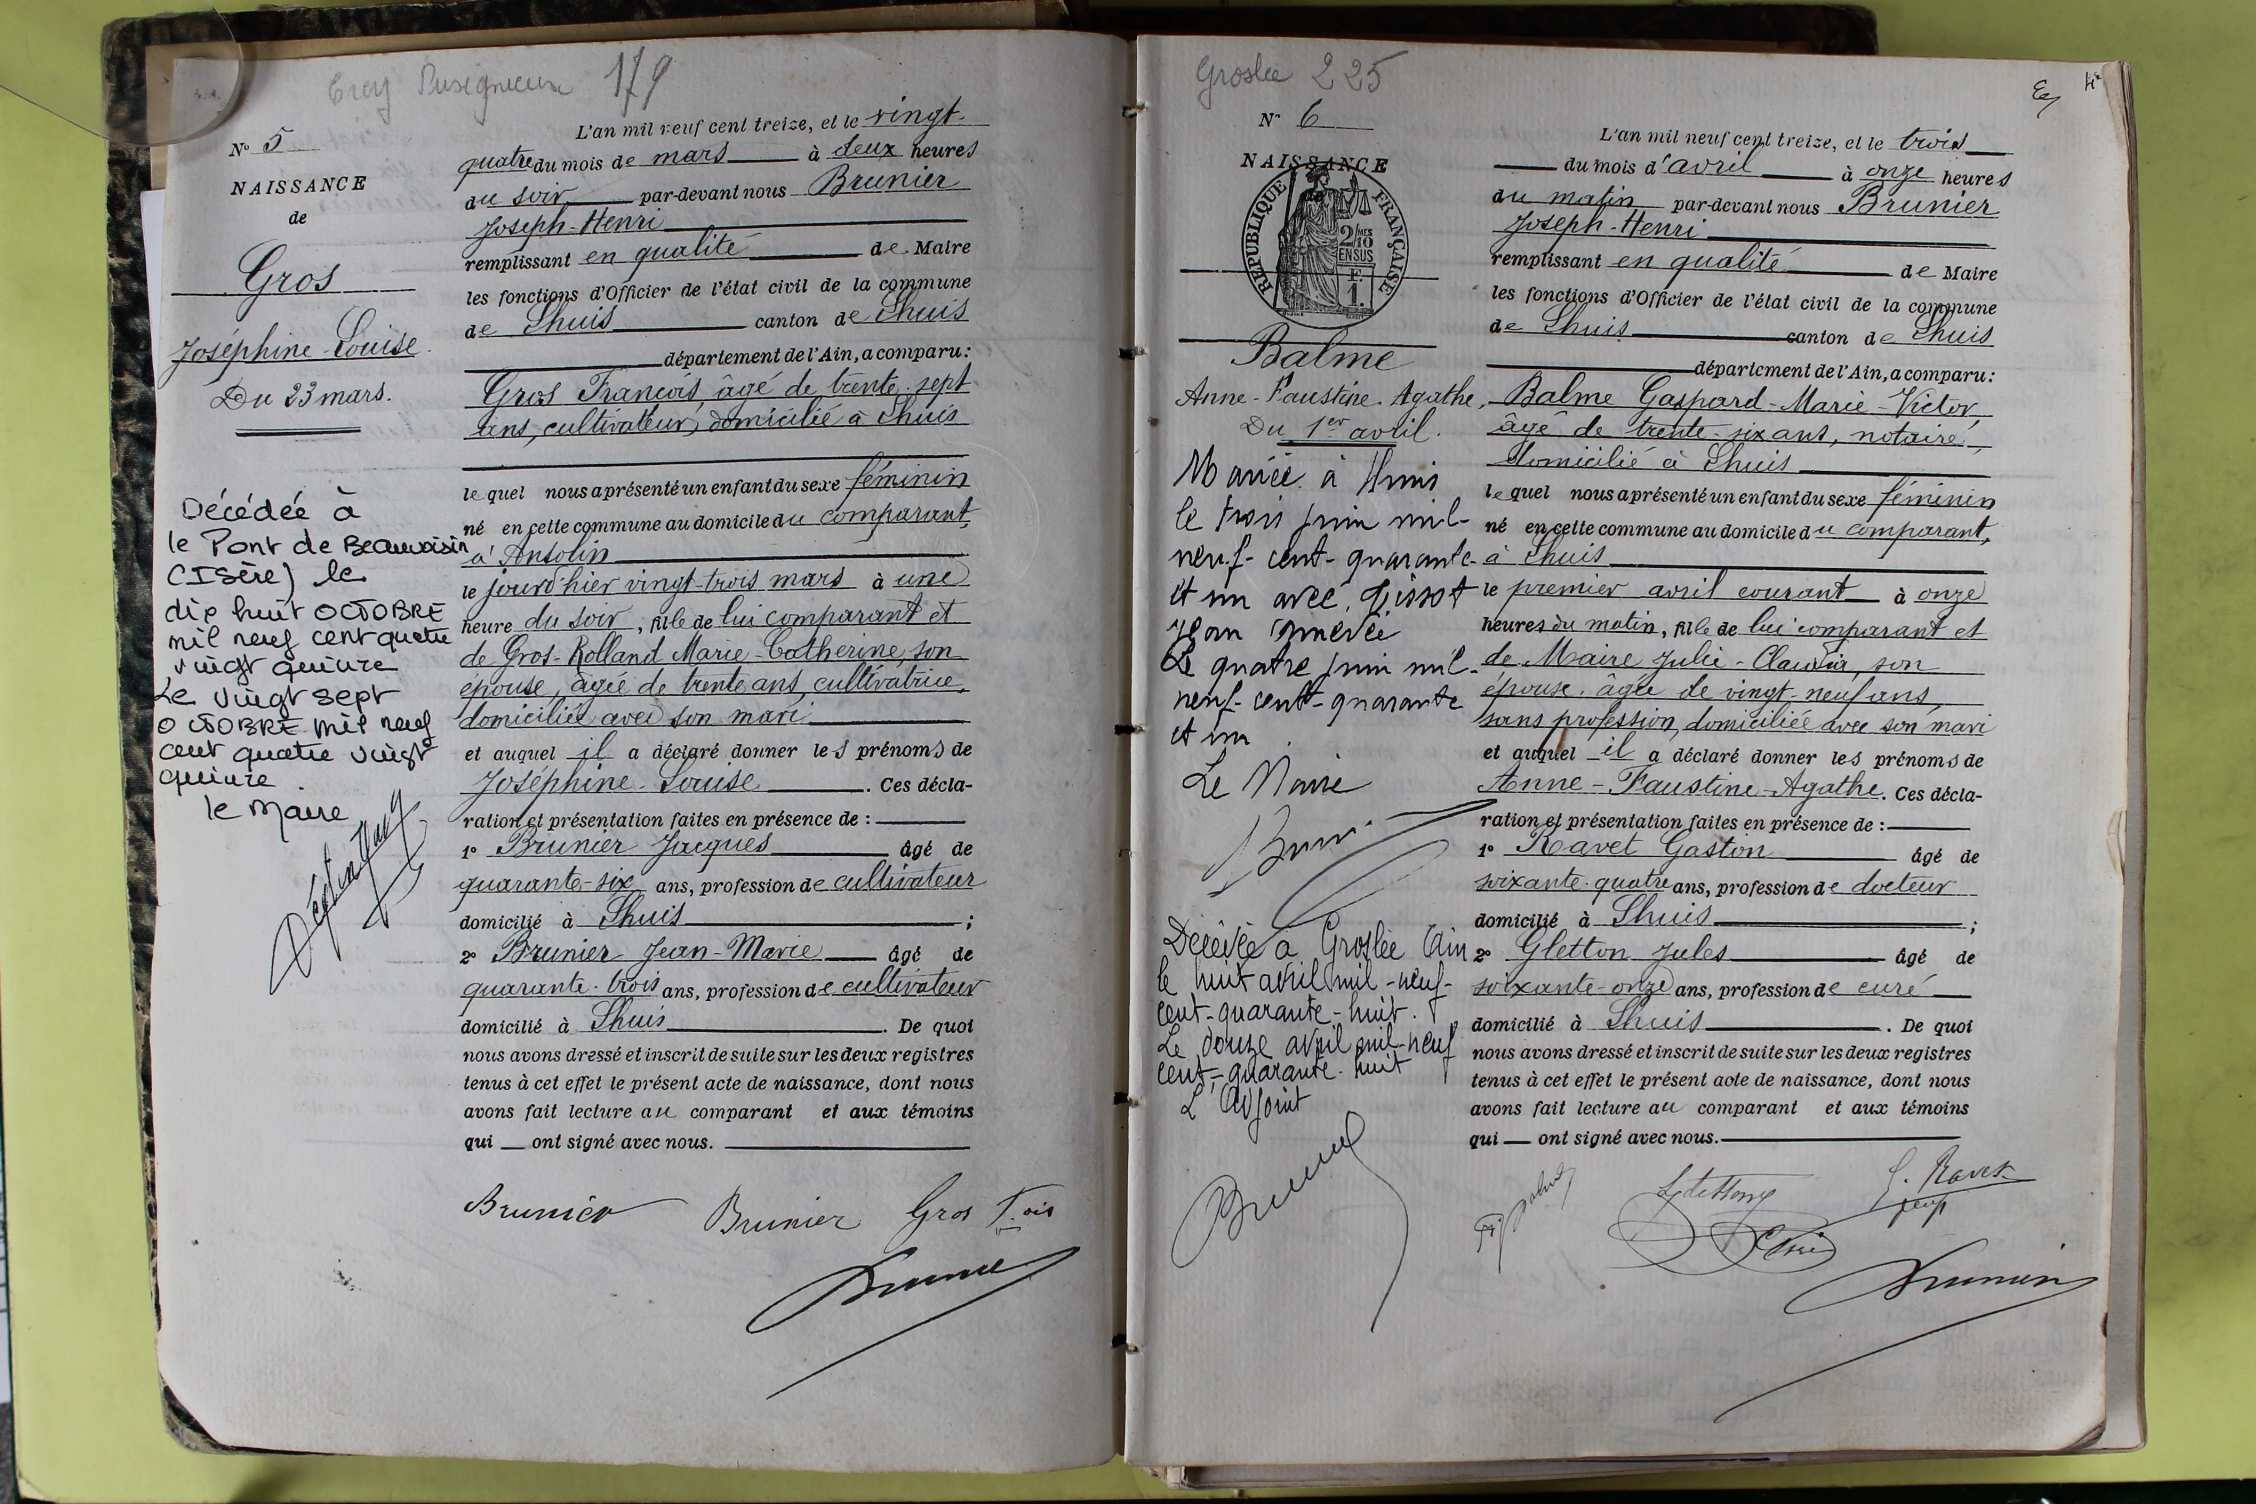 Crey Pusignieux 179
N° 5
NAISSANCE
de
Gros
Joséphine-Louise
Du 23 mars.
Décédée à
le Pont de Beauvoisin
(Isère) le
dix huit OCTOBRE
mil neuf cent quatre
vingt quinze
Le vingt sept
OCTOBRE mil neuf
cent quatre vingt
quinze
le Maire
L'an mil neuf cent treize, et le vingt-
quatre du mois de mars à deux heures
du soir par-devant nous Brunier
Joseph-Henri
remplissant en qualité de Maire
les fonctions d'Officier de l'état civil de la commune
de Lhuis canton de Lhuis
département de l'Ain, a comparu:
Gros François, âgé de trente-sept
ans, cultivateur, domicilié à Lhuis
le quel nous a présenté un enfant du sexe féminin
né en cette commune au domicile du comparant,
à Ansolin
le jourd'hier vingt-trois mars à une
heure du soir, fille de lui comparant et
de Gros-Rolland Marie-Catherine, son
épouse, âgée de trente ans, cultivatrice,
domiciliée avec son mari
et auquel il a déclaré donner les prénoms de
Joséphine-Louise. Ces décla-
ration et présentation faites en présence de :
1° Brunier Jacques âgé de
quarante-six ans, profession de cultivateur
domicilié à Lhuis ;
2° Brunier Jean-Marie âgé de
quarante-trois ans, profession de cultivateur
domicilié à Lhuis. De quoi
nous avons dressé et inscrit de suite sur les deux registres
tenus à cet effet le présent acte de naissance, dont nous
avons fait lecture au comparant et aux témoins
qui ont signé avec nous.
Brunier Brunier Gros F.ois
Brunier
Groslée 225
4
N° 6
NAISSANCE
de
REPUBLIQUE FRANÇAISE
2/10MES
EN SUS
F.
1.
Balme
Anne-Faustine-Agathe.
Du 1er avril.
Mariée à Lhuis
le trois juin mil-
neuf-cent-quarante-
et un avec
Jean
Le quatre juin mil-
neuf-cent-quarante
et un
Le Maire
Décédée à Groslée Ain
le huit avril mil-neuf-
cent-quarante-huit.
Le douze avril mil-neuf
cent-quarante-huit
L'Adjoint
L'an mil neuf cent treize, et le trois
du mois d'avril à onze heures
du matin par-devant nous Brunier
Joseph-Henri
remplissant en qualité de Maire
les fonctions d'Officier de l'état civil de la commune
de Lhuis canton de Lhuis
département de l'Ain, a comparu:
Balme Gaspard-Marie-Victor,
âgé de trente-six ans, notaire,
domicilié à Lhuis
le quel nous a présenté un enfant du sexe féminin
né en cette commune au domicile du comparant,
à Lhuis
le premier avril courant à onze
heures du matin, fille de lui comparant et
de Maire Julie-Claudia, son
épouse, âgée de vingt-neuf ans,
sans profession, domiciliée avec son mari
et auquel il a déclaré donner les prénoms de
Anne-Faustine-Agathe. Ces décla-
ration et présentation faites en présence de :
1° Ravet Gaston âgé de
soixante-quatre ans, profession de docteur
domicilié à Lhuis ;
2° Gletton Jules âgé de
soixante-onze ans, profession de curé
domicilié à Lhuis. De quoi
nous avons dressé et inscrit de suite sur les deux registres
tenus à cet effet le présent acte de naissance, dont nous
avons fait lecture au comparant et aux témoins
qui ont signé avec nous.
G. Ravet
Brunier